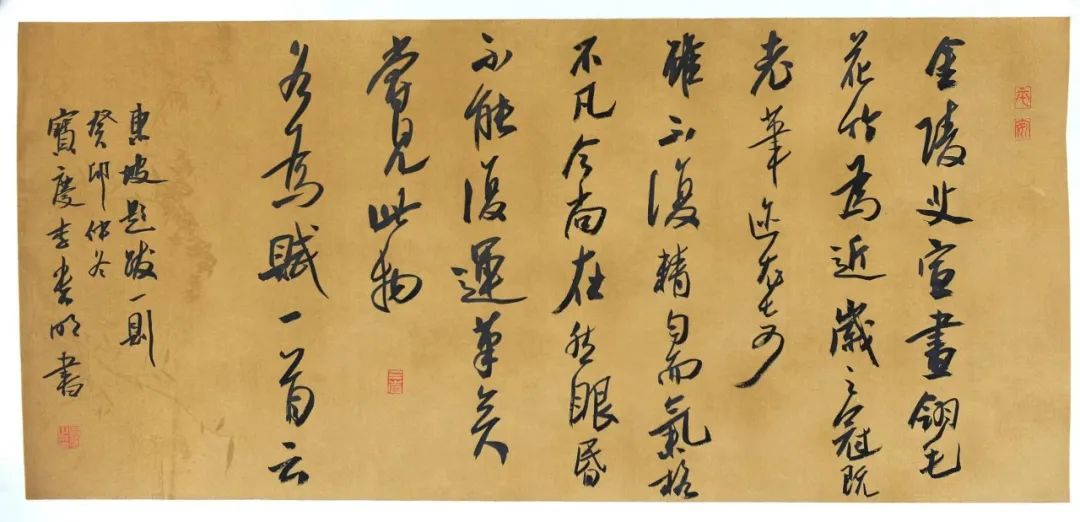 金陵艾宣畫翎毛
花竹為近歲之冠既
老筆迹尤奇
雖不復精匀而氣格
不凡今尚在然眼昏
不能復運筆矣
嘗見此物
各為賦一首云
東坡題跋一則
癸卯仲冬
寶慶李明書